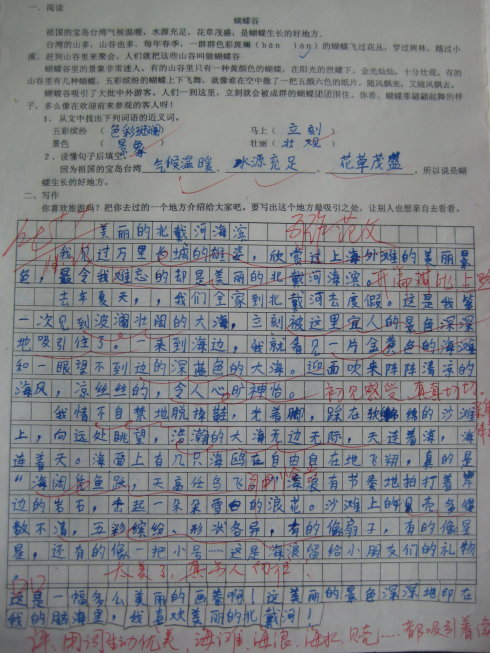 一、阅读
蝴蝶谷
祖国的宝岛台湾气候温暖，水源充足，花草茂盛，是蝴蝶生长的好地方。
台湾的山多，山谷也多。每年春季，一群群色彩斑斓（bān lán）的蝴蝶飞过花丛，穿过树林，越过小
溪，赶到山谷里来聚会。人们就把这些山谷叫做蝴蝶谷
蝴蝶谷里的景象非常迷人。有的山谷里只有一种黄颜色的蝴蝶，在阳光的照耀下，金光灿灿，十分壮观。有的
山谷里有几种蝴蝶，五彩缤纷的蝴蝶上下飞舞，就像谁在空中撒了一把五颜六色的纸片，随风飘来，又随风飘去。
蝴蝶谷吸引了大批中外游客。人们一到这里，立刻就会被成群的蝴蝶团团围住。你看，蝴蝶那翩翩起舞的样
子，多么像在欢迎前来参观的客人呀！
1、从文中找出下列词语的近义词。
五彩缤纷（色彩斑斓） 马上（立刻）
景色（景象） 壮丽（壮观）
2、读懂句子后填空。
因为祖国的宝岛台湾气候温暖、水源充足、花草茂盛，所以说是蝴
蝶生长的好地方。
二、写作
你喜欢旅游吗？把你去过的一个地方介绍给大家吧。要写出这个地方最吸引之处，让别人也想亲自去看看。
美丽的北戴河海滨 范文
我见过万里长城的雄姿，欣赏过上海外滩的美丽景
色，最令我难忘的却是美丽的北戴河海滨。开篇对比
去年夏天，，我们全家到北戴河去度假。这是我第
一次见到波澜壮阔的大海，立刻被这里宜人的景色深深
地吸引住了。一来到海边，我就看见一片金黄色的海滩
和一眼望不到边的深蓝色的大海。迎面吹来阵阵清凉的
海风，凉丝丝的，令人心旷神怡。初见感受，真真切切。
我情不自禁地脱掉鞋，光着脚，踩在软绵绵的沙滩
上，向远处眺望，浩瀚的大海无边无际，天连着海，海
连着天。海面上有几只海鸥在自由自在地飞翔，真的是
“海阔凭鱼跃，天高任鸟飞有书奏地拍打着岸
边的岩石，击起一朵朵雪白的浪花。沙滩上的贝壳多得
数不清，五彩缤纷、形状各异，有的像扇子，有的像星
星，还有的像一把小号……这是海浪留给小朋友们的礼物
太美了，真令人向往！
这是一幅多么美丽的画卷啊！这美丽的景色深深地印在
我的脑海里，我喜欢美丽的北戴河！
评：用词生动优美，海滩、海浪、海水、贝壳……都吸引着